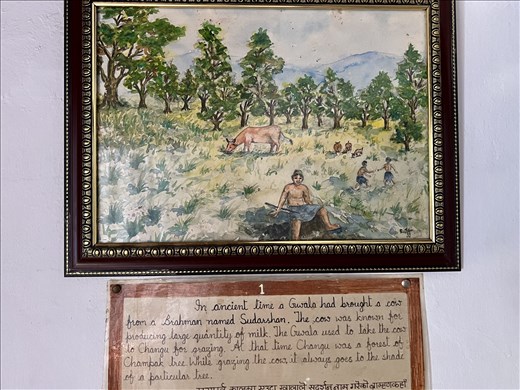 1
In ancient time a Gwala had brought a cow
from a Brahman named Sudarshan. The cow was known for
producing large quantity of milk. The Gwala used to take the cow
to Changu for grazing. At that time Changu was a forest of
Champak tree. While grazing the cow, it always goes to the shade
of a particular tree.
सुदर्शन नाम गरेको